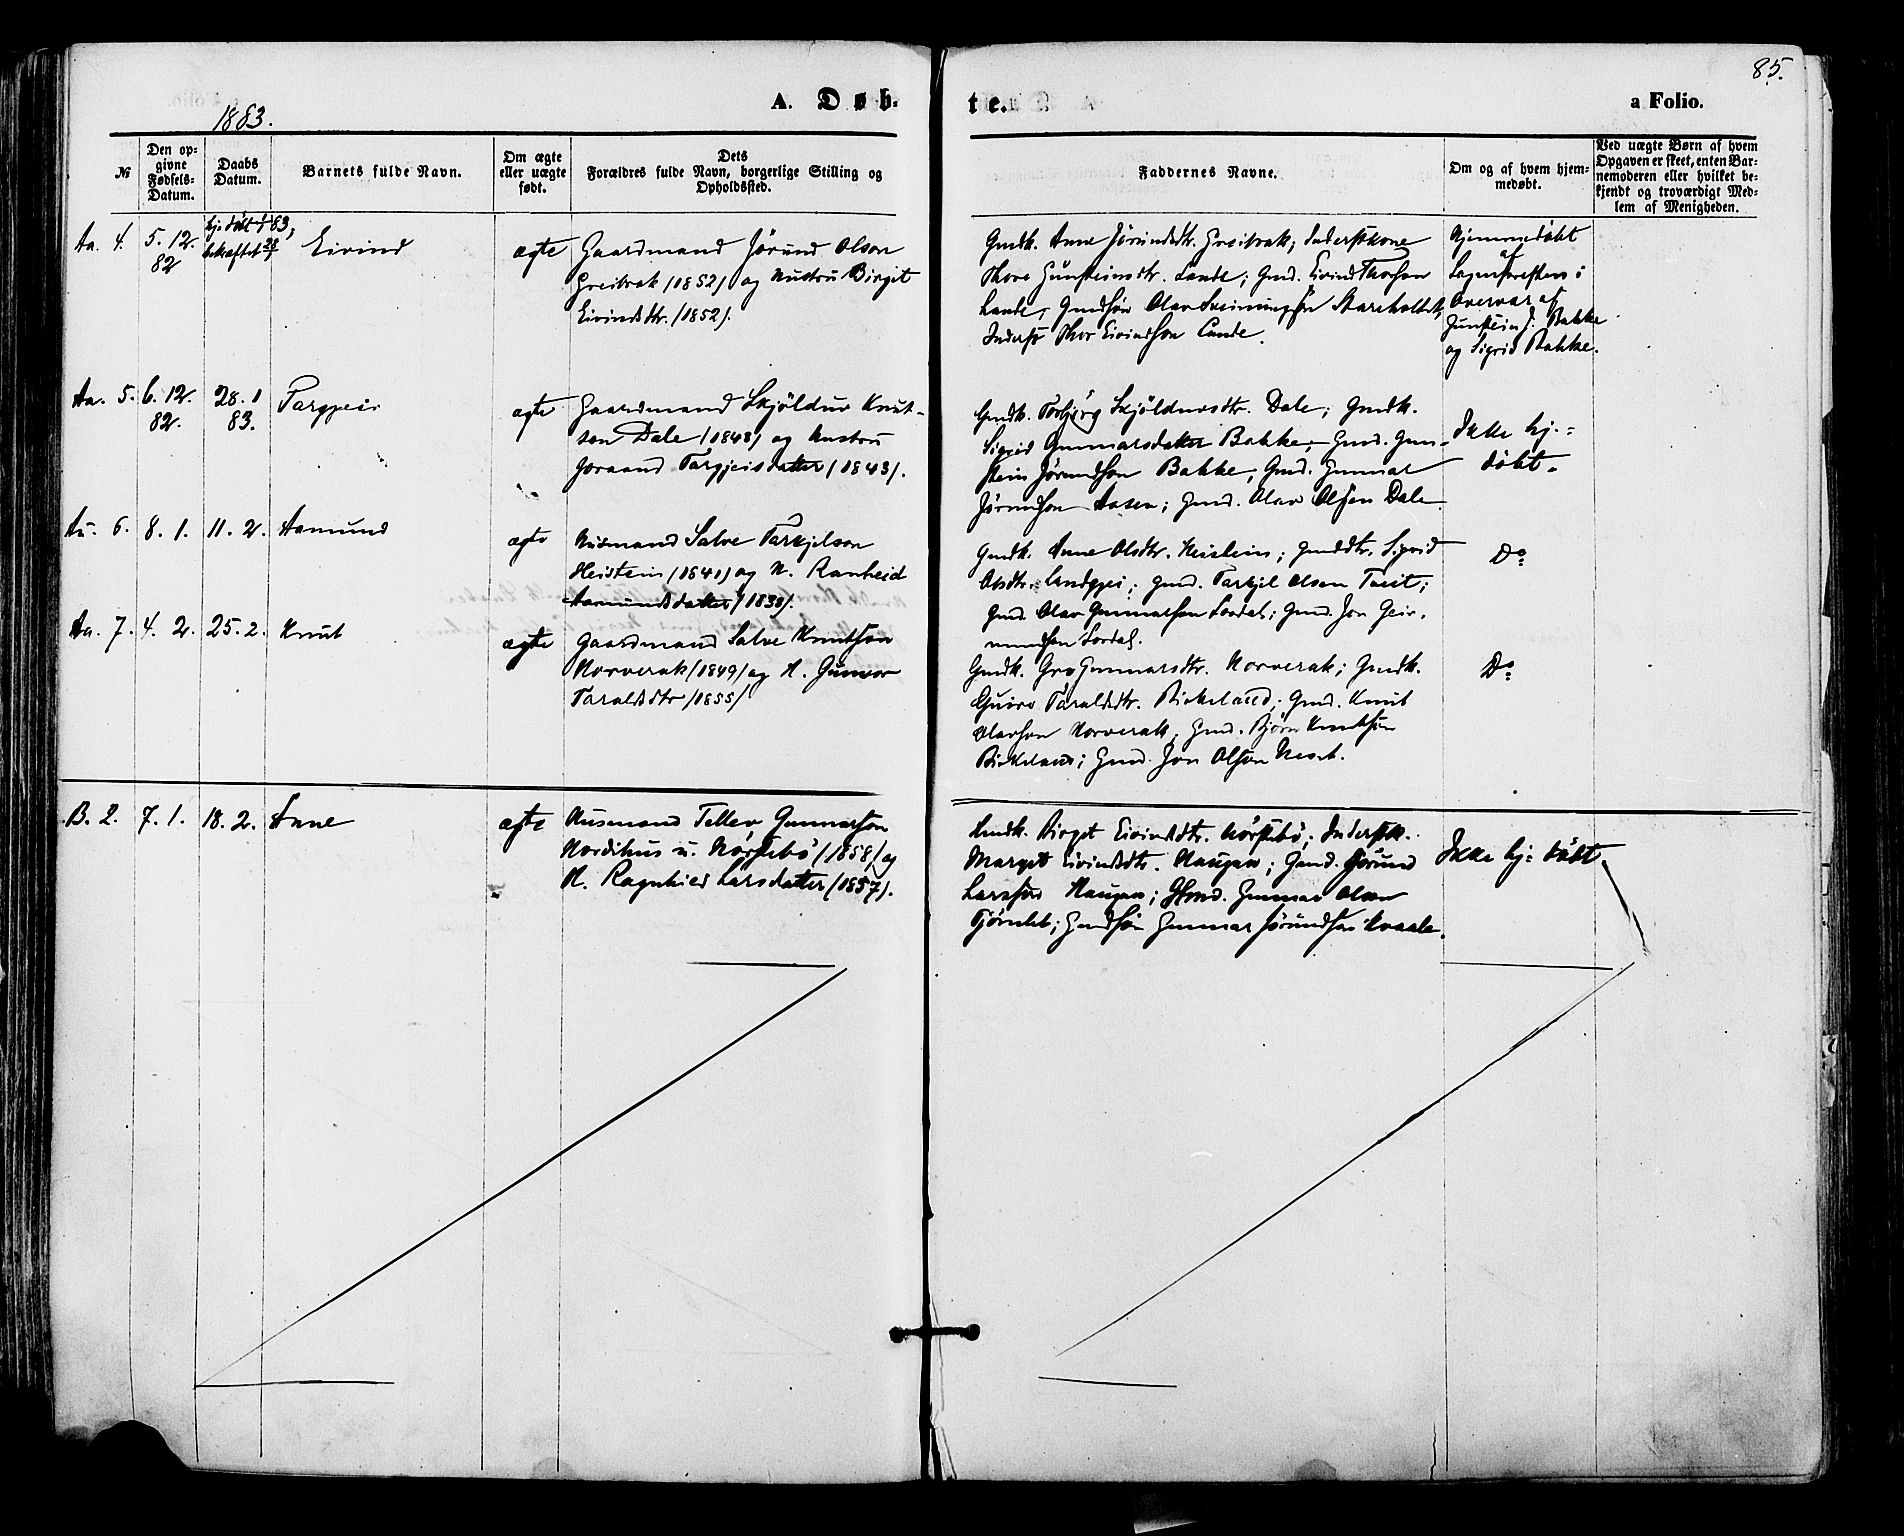 85.
1883.
A. Døb-
te.
a Folio.
№
Den op-
givne
Fødsels-
Datum.
Daabs
Datum.
Barnets fulde Navn.
Om ægte
eller uægte
født.
Dets
Forældres fulde Navn, borgerlige Stilling og
Opholdssted.
Faddernes Navne.
Om og af hvem hjem-
medøbt.
Ved uægte Børn af hvem
Opgaven er skeet, enten Bar-
nemoderen eller hvilket be-
kjendt og troværdigt Med-
lem af Menigheden.
Aa. 4.
5. 12.
82
83,
bekræftet 28/1
Eivind
ægte
Gaardmand Jørund Olson
Greibrok (1852) og Hustru Birgit
Eivindsdtr. (1852).
Gmdk. Anne Jørundsdtr. Greibrok; Inderstkone
Thore Gunsteinsdtr. Lande; Gmd. Eivind Thorson
Lande, Gmdsøn Olav
Inderst Thor Eivindson Lande.
Hjemmedøbt
af
i
Overvær af
Gunstein J. Bakke
og Sigrid Bakke.
Aa. 5.
6. 12.
82.
28. 1
83.
Targjeir
ægte
Gaardmand Skjöldur Knut-
son Dale (1848) og Hustru
Joraand Targjeisdatter (1843).
Gmdk. Torbjørg Skjöldursdtr. Dale; Gmdk.
Sigrid Gunnarsdatter Bakke; Gmd. Gun-
stein Jørundson Bakke; Gmd. Gunnar
Jørundson Aasen; Gmd. Olav Olsen Dale.
Ikke hj.-
döbt.
Aa. 6.
8. 1.
11. 2.
Aamund
ægte
Husmand Salve Tarkjelson
Heistein (1840) og H. Ranheid
Aamundsdatter (1838).
Gmdk. Anne Olsdtr. Heistein; Gmddtr. Sigrid
Olsdtr. Landgjei; Gmd. Tarkjil Olson Tveit;
Gmd. Olav Gunnarson Lordal; Gmd. Jon Geir-
mundson Lordal.
Do
Aa. 7.
4. 2.
25. 2.
Knut
ægte
Gaardmand Salve Knutson
Horverak (1849) og H. Gunvor
Taraldsdtr (1855)
Gmdk. Gro Gunnarsdtr. Horverak; Gmdk.
Guiro Taraldsdtr. Birkeland; Gmd. Knut
Olavson Horverak, Gmd. Bjørn Knutson
Birkeland; Gmd. Jon Olson Neset.
Do
B. 2.
7. 1.
18. 2.
Anne
ægte
Husmand Tellev Gunnarson
Nordihus u. Nørstebö (1858) og
H. Ragnhild Larsdatter (1857).
Hmdk. Birget Eivindsdtr. Nörstebö; Inderstk.
Marget Eivindsdtr. Haugen; Gmd. Jörund
Larsson Haugen; Hmd. Gunnar Olson
Tjörndal; Gmdsön Gunnar Jörundson Kvaale.
Ikke hj: döbt.